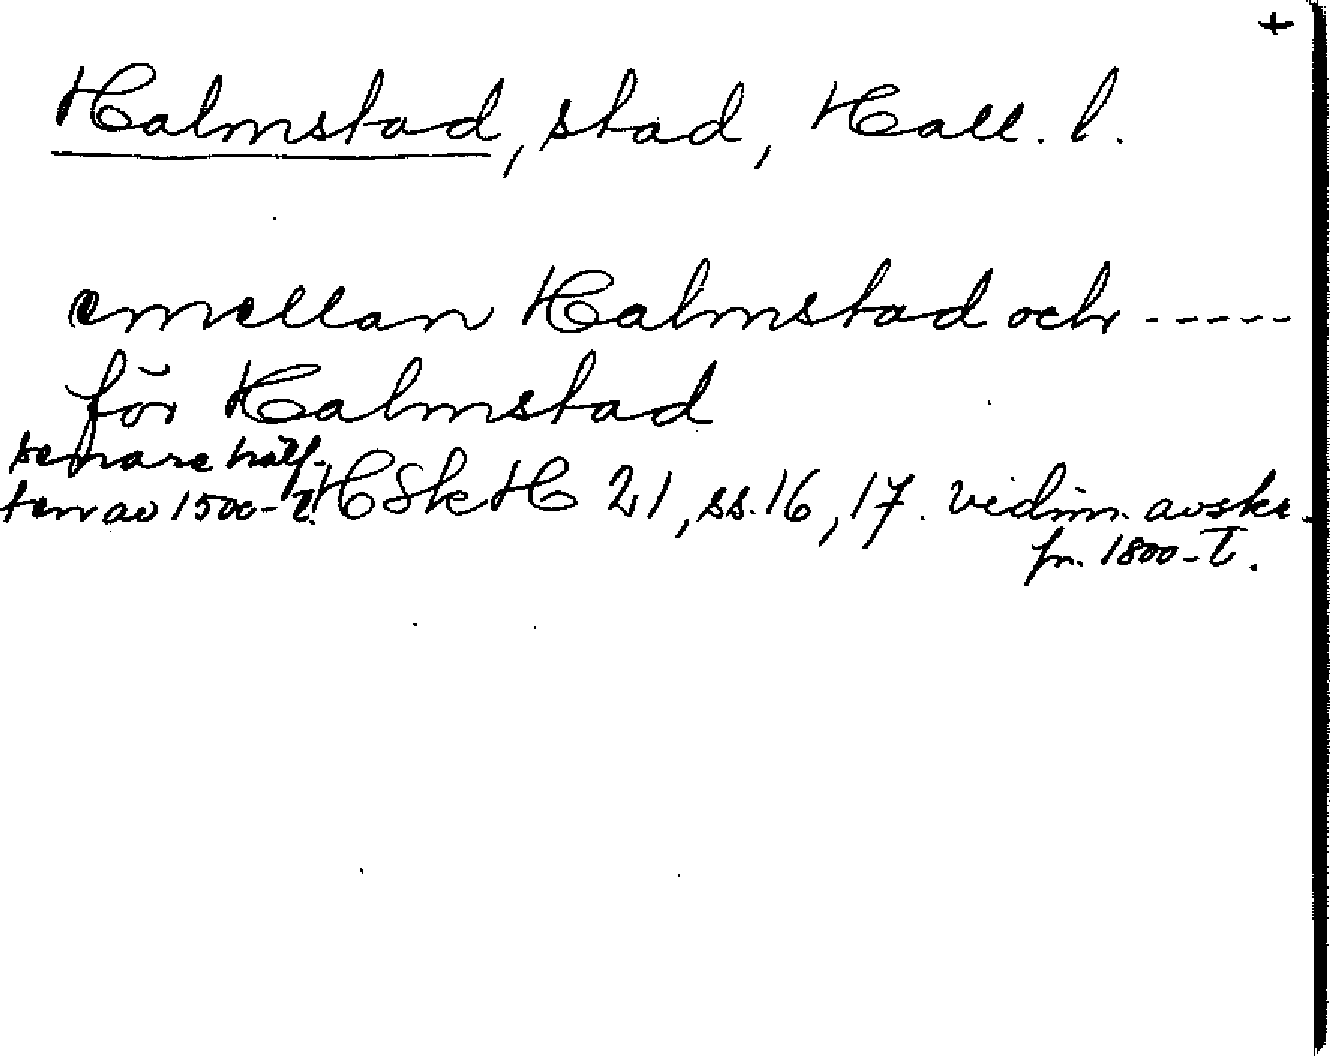 +
Halmstad, stad, Hall. l.
emellan Halmstad och -----
för Halmstad
senare hälf-
ten av 1500-t. HSkH 21, ss. 16, 17. vidim. avskr.
fr. 1800-t.